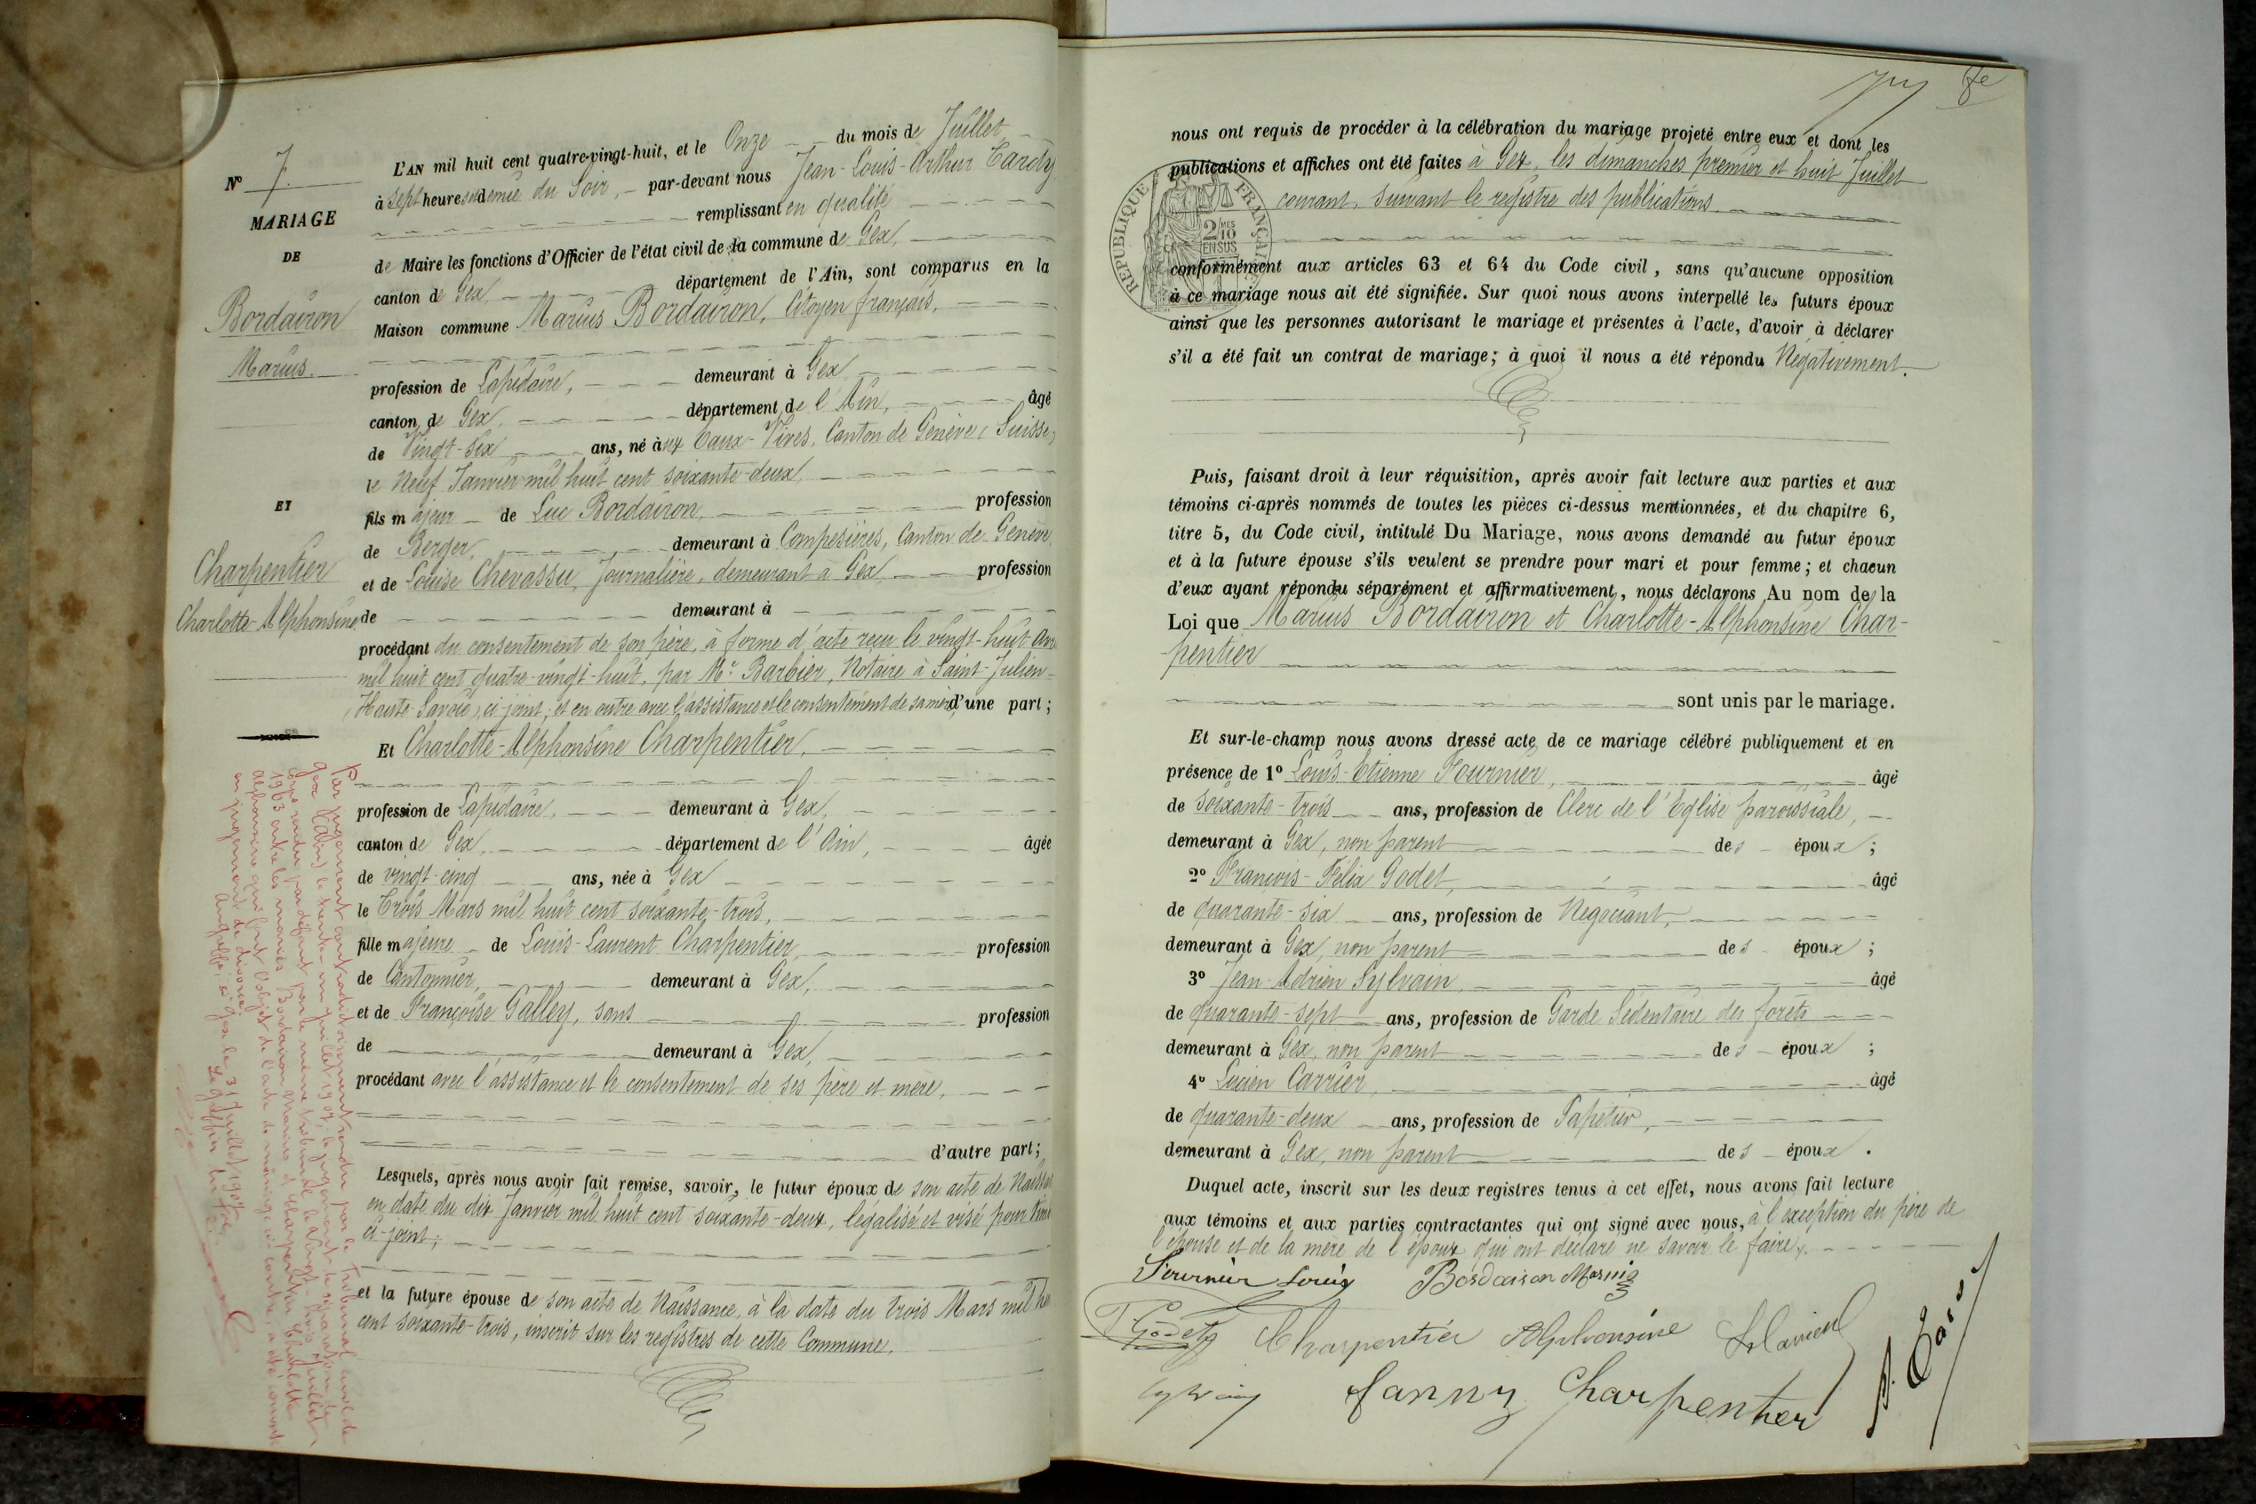 N° 7.
MARIAGE
DE
Bordairon
Marius.
ET
Charpentier
Charlotte-Alphonsine
L'AN mil huit cent quatre-vingt-huit, et le Onze du mois de Juillet
à sept heures et demie du Soir, par-devant nous Jean-Louis-Arthur
remplissant en qualité
de Maire les fonctions d'Officier de l'état civil de la commune de Gex,
canton de Gex, département de l'Ain, sont comparus en la
Maison commune Marius Bordairon, Citoyen français,
profession de Lapidaire, demeurant à Gex
canton de Gex, département de l'Ain, âgé
de Vingt-six ans, né aux Eaux-Vives, Canton de Genève (Suisse)
le Neuf Janvier mil huit cent soixante-deux,
fils majeur de Luc Bordairon, profession
de Berger, demeurant à Compesières, Canton de Genève,
et de Louise Chevassu, Journalière, demeurant à Gex, profession
de demeurant à
procédant du consentement de son père, à forme d'acte reçu le vingt-huit
mil huit cent quatre-vingt-huit, par Me Barbier, Notaire à Saint-Julien-
(Haute-Savoie), ci-joint; et en outre avec l'assistance et le consentement de sa mère, d'une part;
Et Charlotte-Alphonsine Charpentier,
profession de Lapidaire, demeurant à Gex,
canton de Gex, département de l'Ain, âgée
de vingt-cinq ans, née à Gex
le Trois Mars mil huit cent soixante-trois,
fille majeure de Louis-Laurent Charpentier, profession
de Cantonnier, demeurant à Gex,
et de Françoise Galley, sans profession
de demeurant à Gex,
procédant avec l'assistance et le consentement de ses père et mère,
d'autre part;
Lesquels, après nous avoir fait remise, savoir, le futur époux de son acte de
en date du dix Janvier mil huit cent soixante-deux, légalisé et visé pour
ci-joint;
et la future épouse de son acte de Naissance, à la date du trois Mars mil
cent soixante-trois, inscrit sur les registres de cette Commune.
Par jugement contradictoirement rendu par le tribunal civil de
Gex (Ain) le trente-un juillet
1903 entre les mariés Bordairon Marius et Charpentier Charlotte
Alphonsine qui font l'objet de l'acte de mariage ci-contre, a été converti
en jugement de divorce.
nous ont requis de procéder à la célébration du mariage projeté entre eux et dont les
publications et affiches ont été faites à Gex, les dimanches premier et huit Juillet
courant, suivant le registre des publications.
RÉPUBLIQUE FRANÇAISE
2/10
EN SUS
conformément aux articles 63 et 64 du Code civil, sans qu'aucune opposition
à ce mariage nous ait été signifiée. Sur quoi nous avons interpellé les futurs époux
ainsi que les personnes autorisant le mariage et présentes à l'acte, d'avoir à déclarer
s'il a été fait un contrat de mariage; à quoi il nous a été répondu Négativement.
Puis, faisant droit à leur réquisition, après avoir fait lecture aux parties et aux
témoins ci-après nommés de toutes les pièces ci-dessus mentionnées, et du chapitre 6,
titre 5, du Code civil, intitulé Du Mariage, nous avons demandé au futur époux
et à la future épouse s'ils veulent se prendre pour mari et pour femme; et chacun
d'eux ayant répondu séparément et affirmativement, nous déclarons Au nom de la
Loi que Marius Bordairon et Charlotte-Alphonsine Char-
pentier
sont unis par le mariage.
Et sur-le-champ nous avons dressé acte de ce mariage célébré publiquement et en
présence de 1° Louis-Etienne Fournier, âgé
de soixante-trois ans, profession de Clerc de l'Eglise paroissiale,
demeurant à Gex, non parent des époux;
2° François-Félix Godet, âgé
de quarante-six ans, profession de Négociant,
demeurant à Gex, non parent des époux;
3° Jean-Adrien Sylvain, âgé
de quarante-sept ans, profession de Garde Sédentaire des forêts
demeurant à Gex, non parent des époux;
4° Lucien Carrier, âgé
de quarante-deux ans, profession de Papetier,
demeurant à Gex, non parent des époux.
Duquel acte, inscrit sur les deux registres tenus à cet effet, nous avons fait lecture
aux témoins et aux parties contractantes qui ont signé avec nous, à l'exception du père de
l'épouse et de la mère de l'époux qui ont déclaré ne savoir le faire.
Fournier Louis Bordairon Marius
F Godet Charpentier Alphonsine
Sylvain Fanny Charpentier